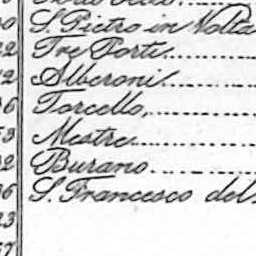 S. Pietro in Volta
Tre Porti
Alberoni
Torcello,
Mestre
Burano
S. Francesco del